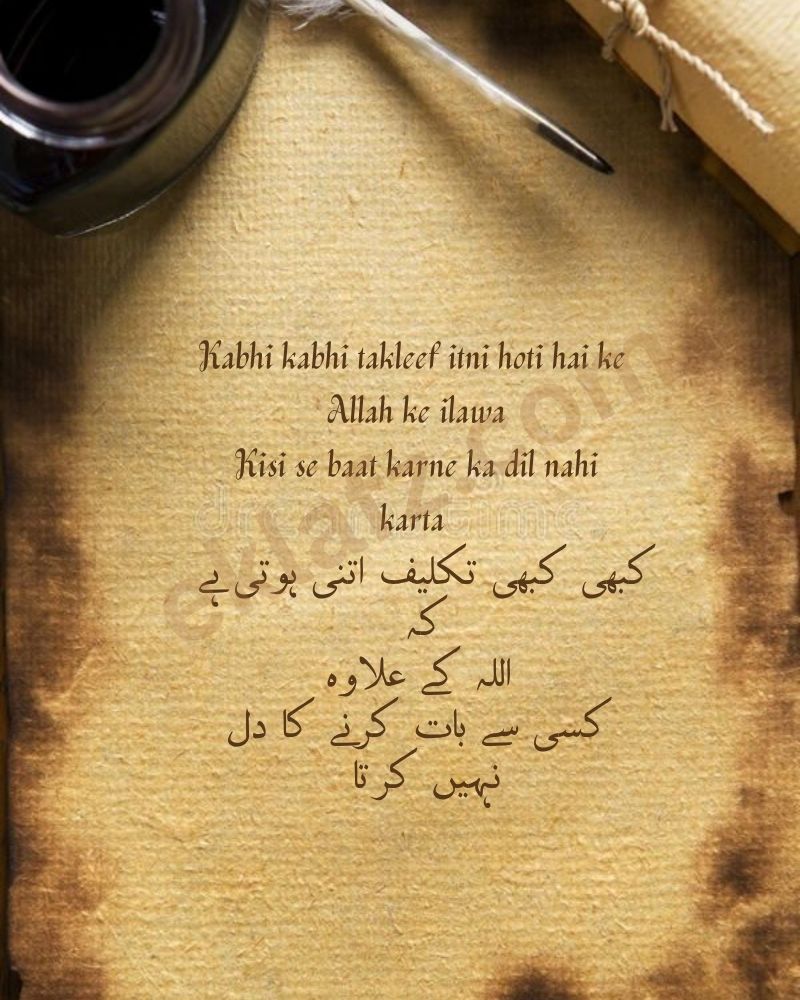 Kabhi kabhi takleef itni hoti hai ke
Allah ke ilawa
Kisi se baat karne ka dil nahi
karta
کبھی کبھی تکلیف اتنی ہوتی ہے
کہ
اللہ کے علاوہ
کسی سے بات کرنے کا دل
نہیں کرتا